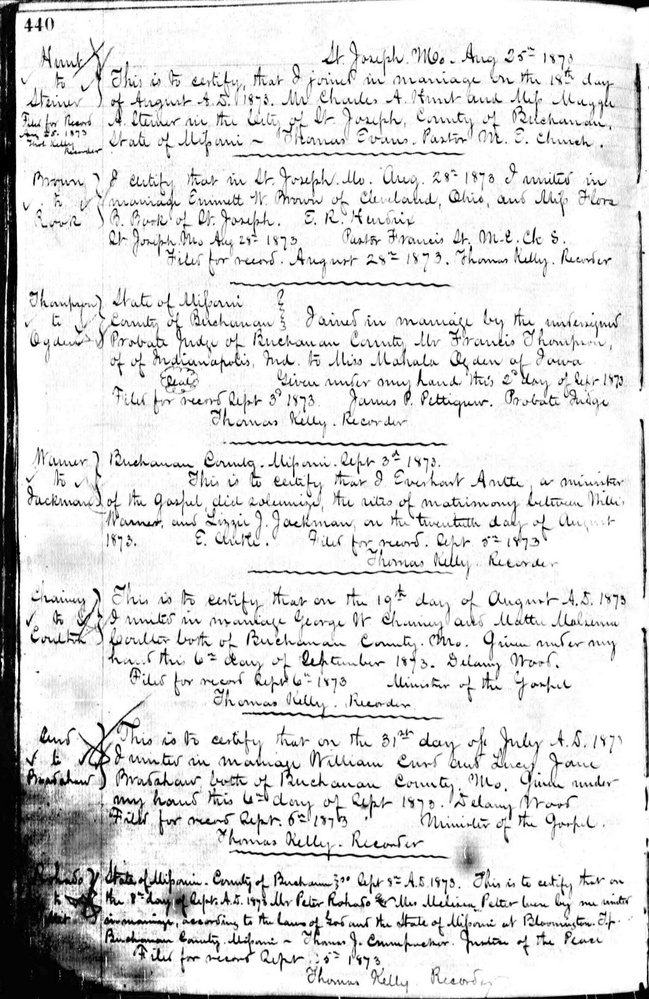 440
Hunt
to
Steiner
Filed for Record
Aug 25. 1873
Thos Kelly
Recorder
St. Joseph. Mo. Aug 25th 1873
This is to certify, that I joined in marriage on the 18th day
of August A.D. 1873. Mr Charles A. Hunt and Miss Maggie
A. Steiner in the City of St. Joseph, County of Buchanan,
State of Missouri – Thomas Evans. Pastor M. E. Church.
Brown
to
Rook
I certify that in St. Joseph. Mo. Aug. 28th 1873 I united in
marriage Emmett W. Brown of Cleveland, Ohio, and Miss Flora
B. of St. Joseph. E. R. Hendrix
St. Joseph. Mo Aug 28th 1873 Pastor Francis St. M.E. Ch S.
Filed for record. August 28th 1873. Thomas Kelly. Recorder
Thompson
to
Ogden
State of Missouri
County of Buchanan Joined in marriage by the undersigned
Probate Judge of Buchanan County, Mr Francis Thompson,
of of Indianapolis, Ind. to Miss Mahala Ogden of Iowa
Seal Given under my hand this 2d day of Sept 1873.
Filed for record Sept 3d 1873. James P. Pettigrew. Probate Judge
Thomas Kelly. Recorder
Warner
to
Jackman
Buchanan County. Missouri. Sept 3rd 1873.
This is to certify that I Everhart Antle, a minister
of the Gospel, did solemnize, the rites of matrimony between
Warner, and Lizzie J. Jackman, on the twentieth day of August
1873. E. Antle. Filed for record. Sept 5th 1873
Thomas Kelly. Recorder
Chainey
to
Coulter
This is to certify that on the 19th day of August A.D. 1873
I united in marriage George W Chainey and Mattie
Coulter both of Buchanan County. Mo. Given under my
hand this 6th day of September 1873. Delany Wood.
Filed for record Sept 6th 1873 Minister of the Gospel
Thomas Kelly. Recorder.
Curd
to
Bradshaw
This is to certify that on the 31st day of July A.D. 1873
I united in marriage William Curd and Lucy Jane
Bradshaw both of Buchanan County. Mo. Given under
my hand this 6th day of Sept 1873. Delany Wood
Filed for record Sept. 6th 1873 Minister of the Gospel.
Thomas Kelly. Recorder
Rohado
to
State of Missouri. County of Buchanan Sept 8th A.D. 1873. This is to certify that on
the 8th day of Sept. A.D. 1873 Mr Peter Rohado & Mrs Melissa Pelter were by me united
in marriage, according to the laws of God and the State of Missouri at Bloomington Tp.
Buchanan County. Missouri – Thomas J. Crumpacker. Justice of the Peace
Filed for record Sept 1873
Thomas Kelly. Recorder